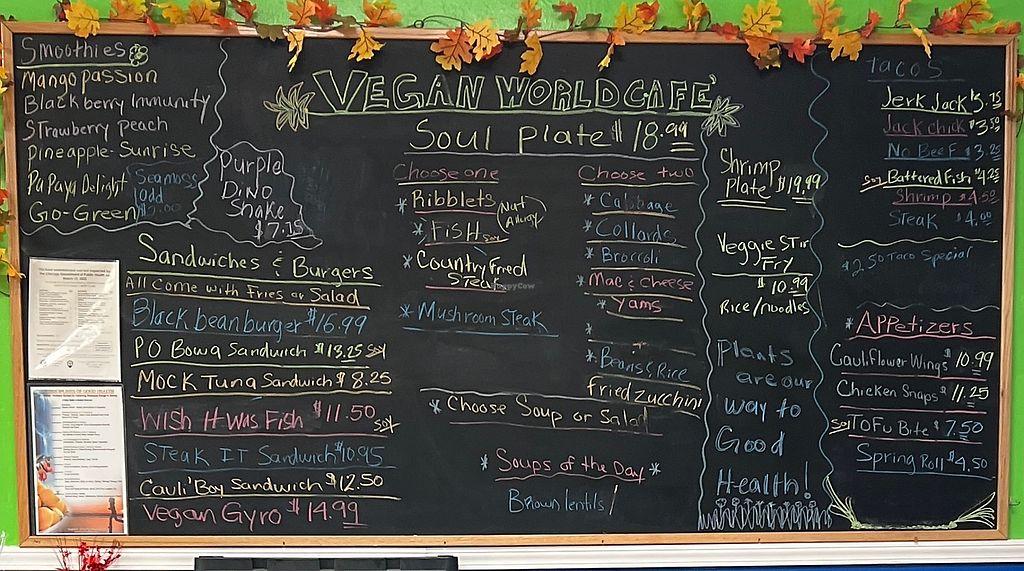 Smoothies
Mango passion
Blackberry Immunity
Strawberry peach
Pineapple-Sunrise
PaPaya Delight
Go-Green
Seamoss
add
Purple
Dino
Shake
$7.75
VEGAN WORLD CAFE'
Soul plate $18.99
Choose one
* Ribblets
Nut
Allergy
* Fish soy
* Country Fried
Steak
* Mushroom Steak
Choose two
* Cabbage
* Collards
* Broccoli
* Mac & Cheese
* Yams
*
* Beans & Rice
Fried zucchini
* Choose Soup or Salad
* Soups of the Day *
Brown lentils /
Sandwiches & Burgers
All Come with Fries or Salad
Black bean burger $16.99
PO Bowa Sandwich $13.25 soy
Mock Tuna Sandwich $8.25
Wish It Was Fish $11.50
soy
Steak It Sandwich $10.95
Cauli'Boy Sandwich $12.50
Vegan Gyro $14.99
Shrimp
Plate $19.99
Veggie Stir
Fry
$10.99
Rice/noodles
Plants
are our
way to
Good
Health!
Tacos
Jerk Jack $3.75
Jack chick $3.50
No Beef $3.25
Soy Battered Fish $4.25
Shrimp $4.50
Steak $4.00
$2.50 Taco Special
* Appetizers
Cauliflower Wings $10.99
Chicken Snaps $11.25
soy Tofu Bite $7.50
Spring Roll $4.50
HappyCow